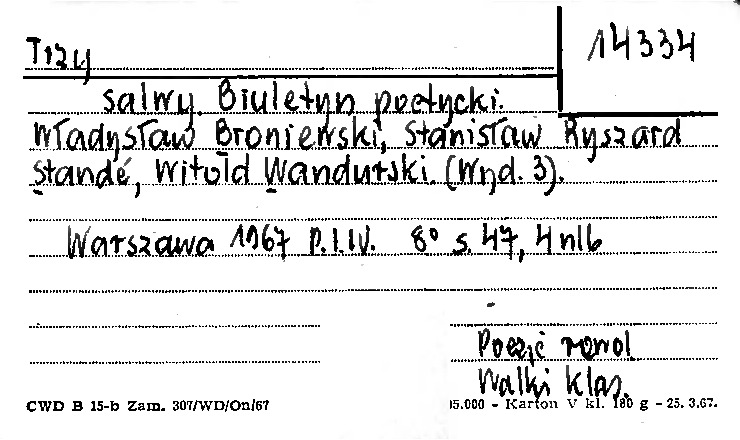 Trzy
14334
salwy. Biuletyn poetycki.
Władysław Broniewski, Stanisław Ryszard
Standé, Witold Wandurski. (Wyd. 3).
Warszawa 1967 P.I.W. 8° s. 47, 4 nlb
Poezje rewol
Walki klas.
CWD B 15-b Zam. 307/WD/On/67
15.000 - Karton V kl. 180 g - 25. 3.67.